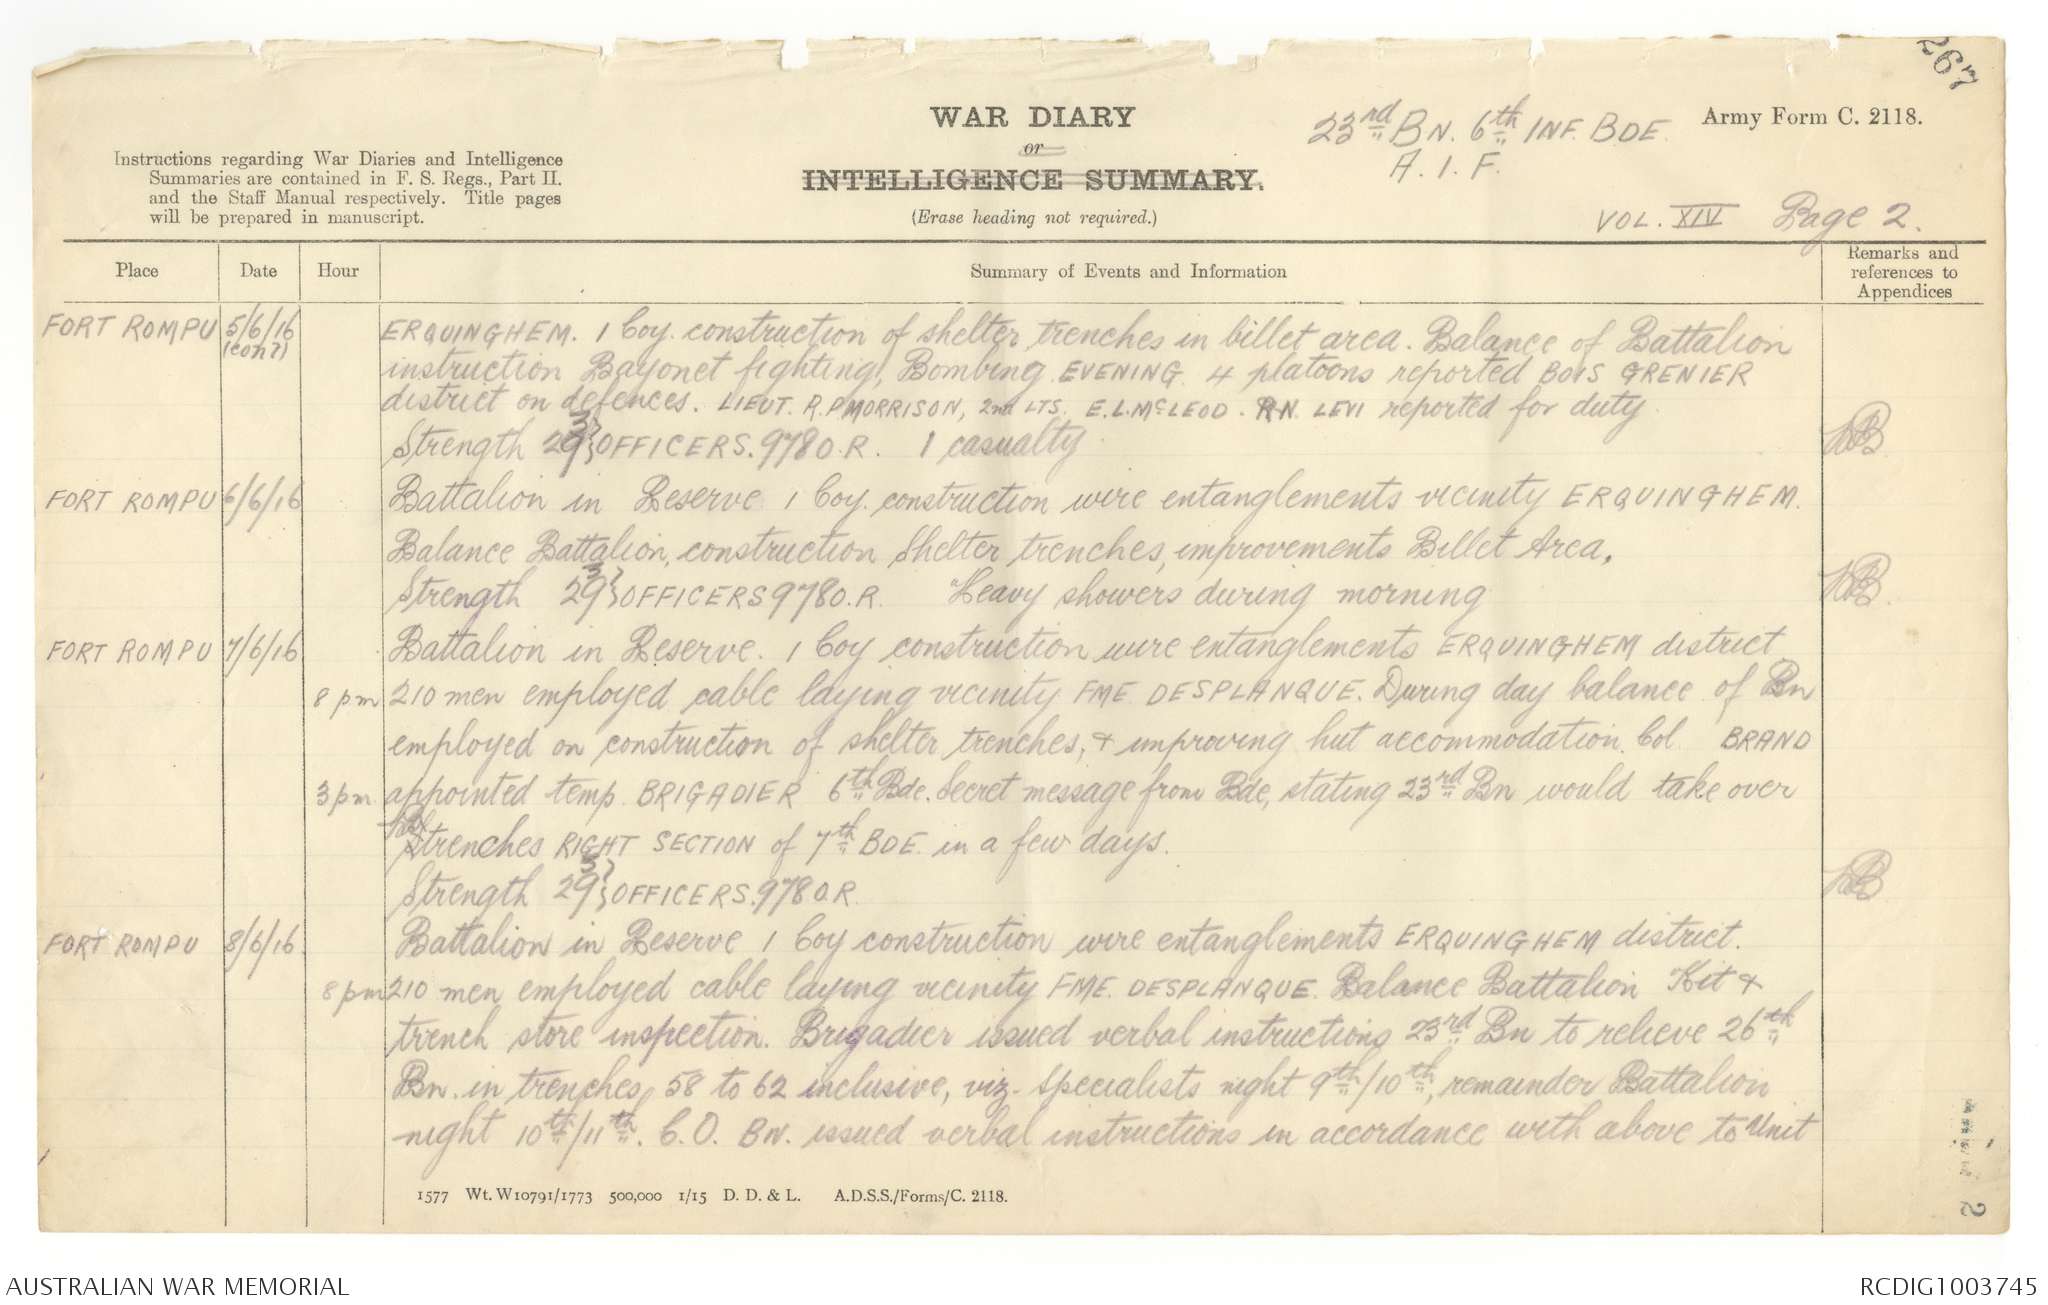 267
WAR DIARY
or
INTELLIGENCE SUMMARY.
(Erase heading not required.)
23rd BN. 6th INF. BDE.
A. I. F.
Army Form C. 2118.
VOL. XIV Page 2.
Instructions regarding War Diaries and Intelligence
Summaries are contained in F. S. Regs., Part II.
and the Staff Manual respectively. Title pages
will be prepared in manuscript.
Place Date Hour Summary of Events and Information Remarks and references to Appendices
FORT ROMPU 5/6/16 ERQUINGHEM. 1 Coy. construction of shelter trenches in billet area. Balance of Battalion
instruction Bayonet fighting, Bombing. EVENING 4 platoons reported BOIS GRENIER
district on defences. LIEUT. R.P. MORRISON, 2nd LTS. E.L. McLEOD. R.N. LEVI reported for duty.
Strength 29 3} OFFICERS. 978 O.R. 1 casualty
FORT ROMPU 6/6/16 Battalion in Reserve 1 Coy. construction wire entanglements vicinity ERQUINGHEM.
Balance Battalion, construction Shelter trenches, improvements Billet Area.
Strength 29 3} OFFICERS 978 O.R. Heavy showers during morning
FORT ROMPU 7/6/16 Battalion in Reserve. 1 Coy construction wire entanglements ERQUINGHEM district
8 pm 210 men employed cable laying vicinity FME DESPLANQUE. During day balance of Bn
employed on construction of shelter trenches, & improving hut accommodation. Col. BRAND
3 pm appointed temp. BRIGADIER 6th Bde. Secret message from Bde, stating 23rd Bn would take over
trenches RIGHT SECTION of 7th BDE. in a few days.
Strength 29 3} OFFICERS. 978 O.R.
FORT ROMPU 8/6/16. Battalion in Reserve 1 Coy construction wire entanglements ERQUINGHEM district.
8 pm 210 men employed cable laying vicinity FME. DESPLANQUE. Balance Battalion Kit &
trench store inspection. Brigadier issued verbal instructions 23rd Bn to relieve 26th
Bn. in trenches, 58 to 62 inclusive, viz- Specialists night 9th/10th, remainder Battalion
night 10th/11th. C.O. BN. issued verbal instructions in accordance with above to Unit
1577 Wt. W10791/1773 500,000 1/15 D. D. & L. A.D.S.S./Forms/C. 2118.
2
AUSTRALIAN WAR MEMORIAL
RCDIG1003745